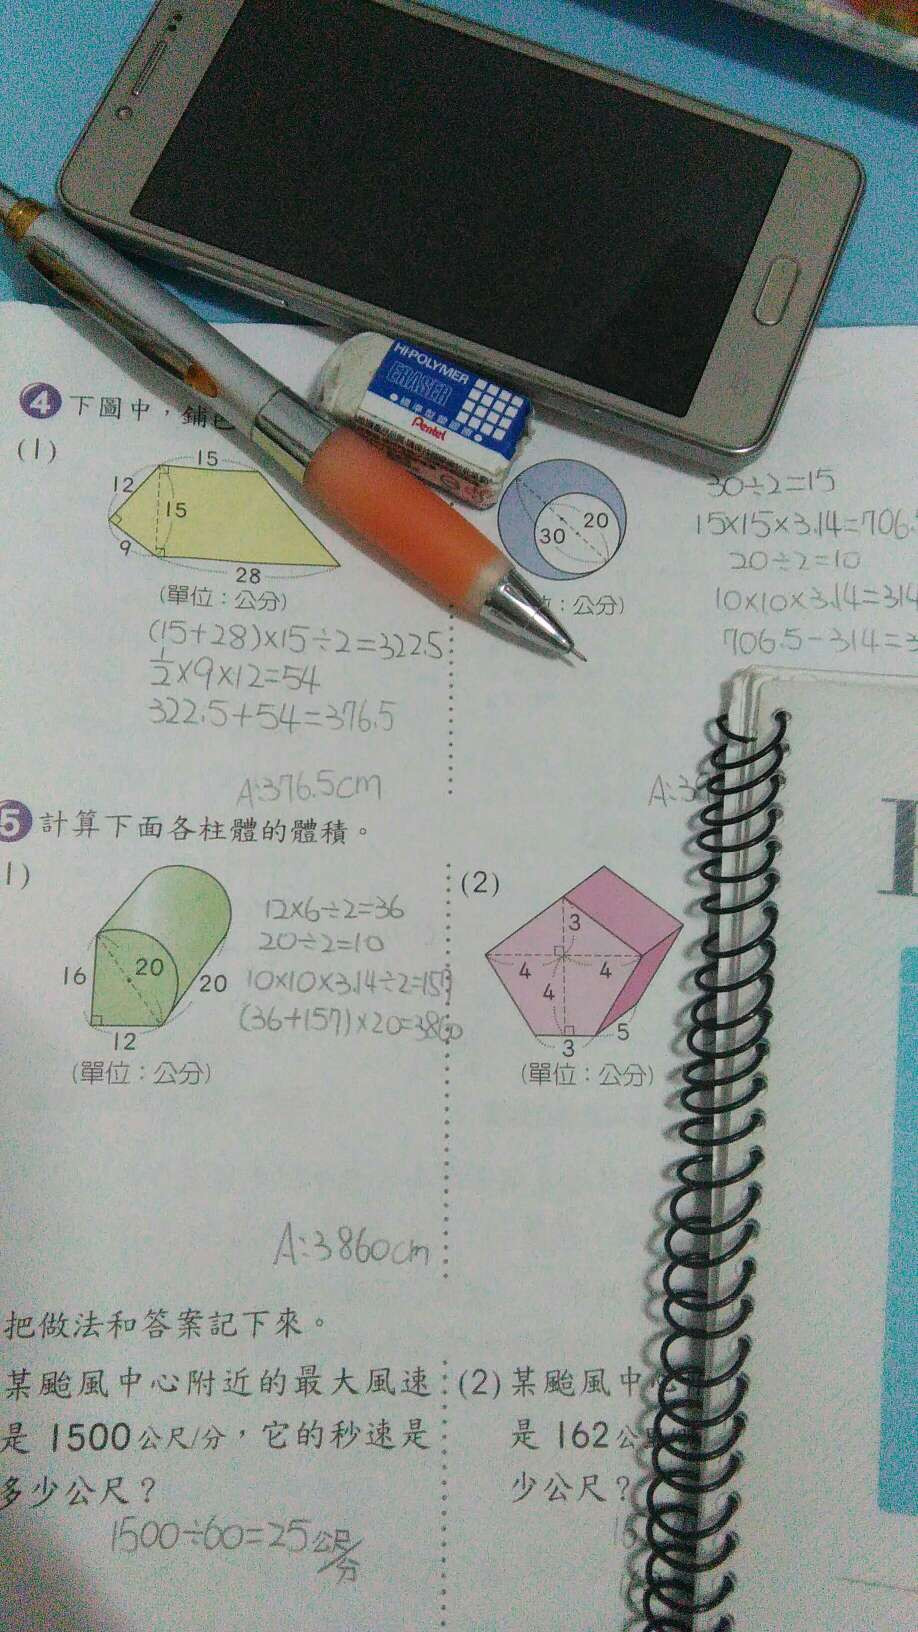 HI-POLYMER
ERASER
●標準型塑膠擦●
Pentel
4 下圖中，鋪色
(1)
15
12
15
9
28
(單位：公分)
(15+28)×15÷2=322.5
1/2×9×12=54
322.5+54=376.5
A:376.5cm
20
30
公分)
30÷2=15
15×15×3.14=706.
20÷2=10
10×10×3.14=314
706.5-314=3
A:3
5 計算下面各柱體的體積。
1)
16
20
20
12
(單位：公分)
12×6÷2=36
20÷2=10
10×10×3.14÷2=157
(36+157)×20=3860
A:3860cm
(2)
3
4
4
4
3
5
(單位：公分)
把做法和答案記下來。
某颱風中心附近的最大風速
是 1500公尺/分，它的秒速是
多少公尺？
1500÷60=25公尺/分
(2) 某颱風中
是 162公
少公尺？